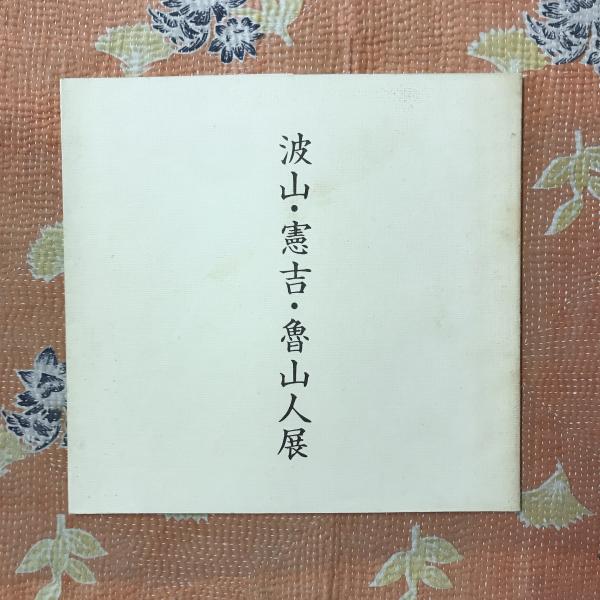 波山・憲吉・魯山人展